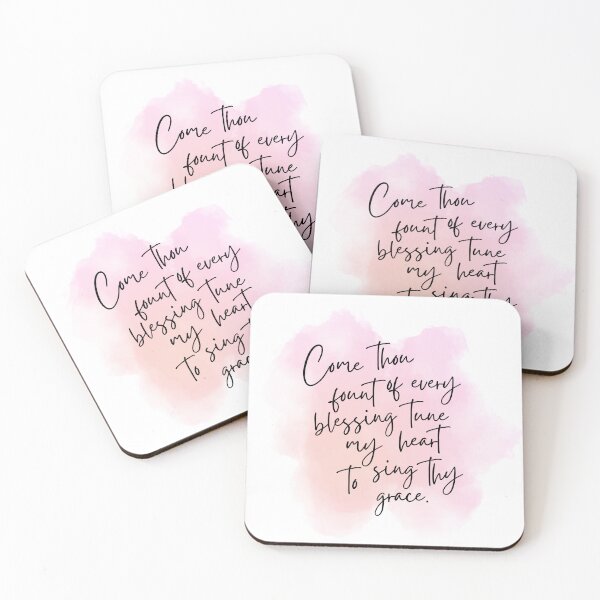 Come thou
fount of every
tune
Come thou
fount of every
blessing tune
my heart
to sing thy
Come thou
fount of every
blessing tune
my heart
to sing
grace
Come thou
fount of every
blessing tune
my heart
to sing thy
grace.